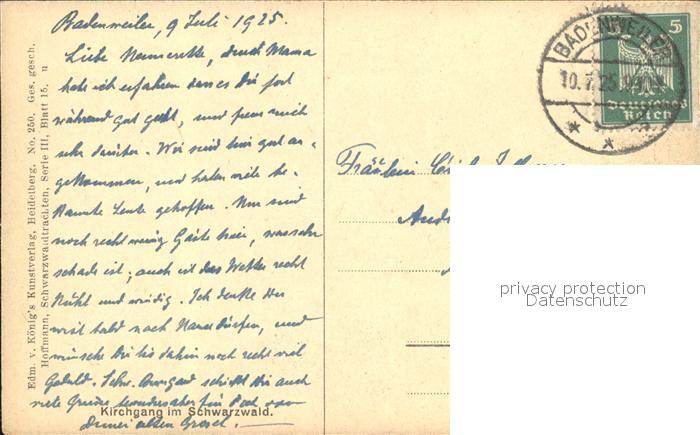 Badenweiler, 9 Juli 1925.
Liebe durch Mama
hab ich erfahren dass es Dir fort
während gut geht, und freue mich
sehr darüber. Wir sind hier gut an-
gekommen, und haben viele be-
kannte Leute getroffen. Nur sind
noch recht wenig Gäste hier, was sehr
schade ist; auch ist das Wetter recht
kühl und windig. Ich denke Du
wirst bald nach Hause dürfen, und
wünsche Dir bis dahin noch recht viel
Geduld. Schw. schickt Dir auch
viele Grüsse
Deiner alten
Kirchgang im Schwarzwald.
Edm. v. König's Kunstverlag, Heidelberg. No. 250. Ges. gesch.
Hoffmann, Schwarzwaldtrachten, Serie III, Blatt 15. u
BADENWEILER
10.7.25
5
Deutsches
Reich
Fräulein
privacy protection
Datenschutz